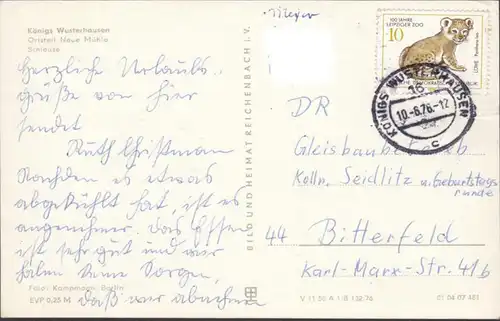 Königs Wusterhausen
Ortsteil Neue Mühle
Schleuse
Herzliche Urlaubs-
grüße von hier
sendet
Ruth Christmann
Nachdem es etwas
abgekühlt hat, ist es
angenehmer. Das Essen
ist sehr gut und wir
haben keine Sorgen,
daß wir abnehmen
Foto: Kampmann, Berlin
EVP 0,25 M
BILD UND HEIMAT REICHENBACH i. V.
Meyer
100 JAHRE
LEIPZIGER ZOO
10
KÖNIGS WUSTERHAUSEN
16
10.-8.78.-12
c
DR
Gleisbaubetrieb
Kolln. Seidlitz u. Geburtstags
runde
44 Bitterfeld
Karl-Marx-Str. 41b
V 11 50 A 1/B 132/76
01 04 07 483